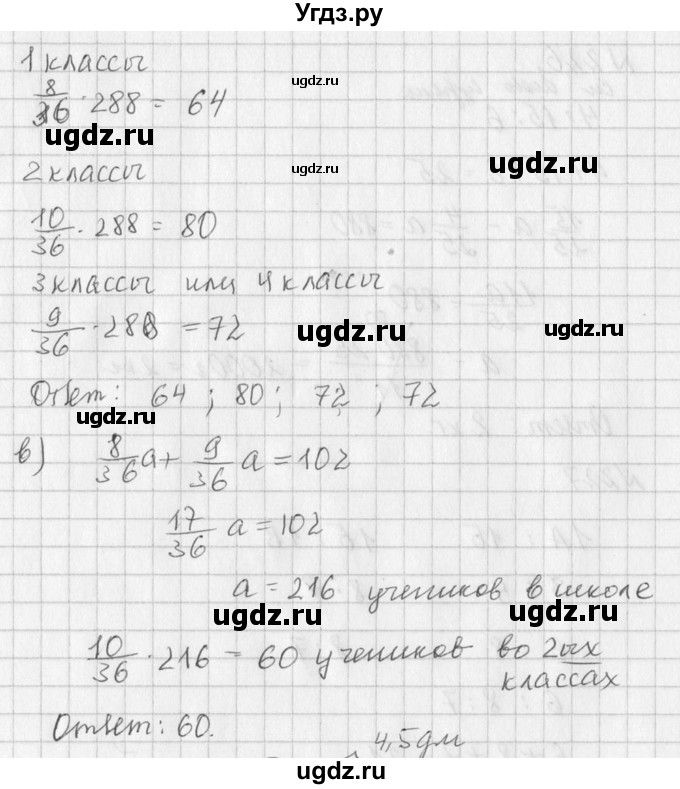 Угдз.ру
1 классы
8/36 · 288 = 64
2 классы
10/36 · 288 = 80
3 классы или 4 классы
9/36 · 288 = 72
Ответ: 64 ; 80 ; 72 ; 72
в) 8/36 a + 9/36 a = 102
17/36 a = 102
a = 216 учеников в школе
10/36 · 216 = 60 учеников во 2ых
классах
Ответ: 60.
4,5 дм
ugdz.ru
ugdz.ru
ugdz.ru
ugdz.ru
ugdz.ru
ugdz.ru
ugdz.ru
ugdz.ru
ugdz.ru
ugdz.ru
ugdz.ru